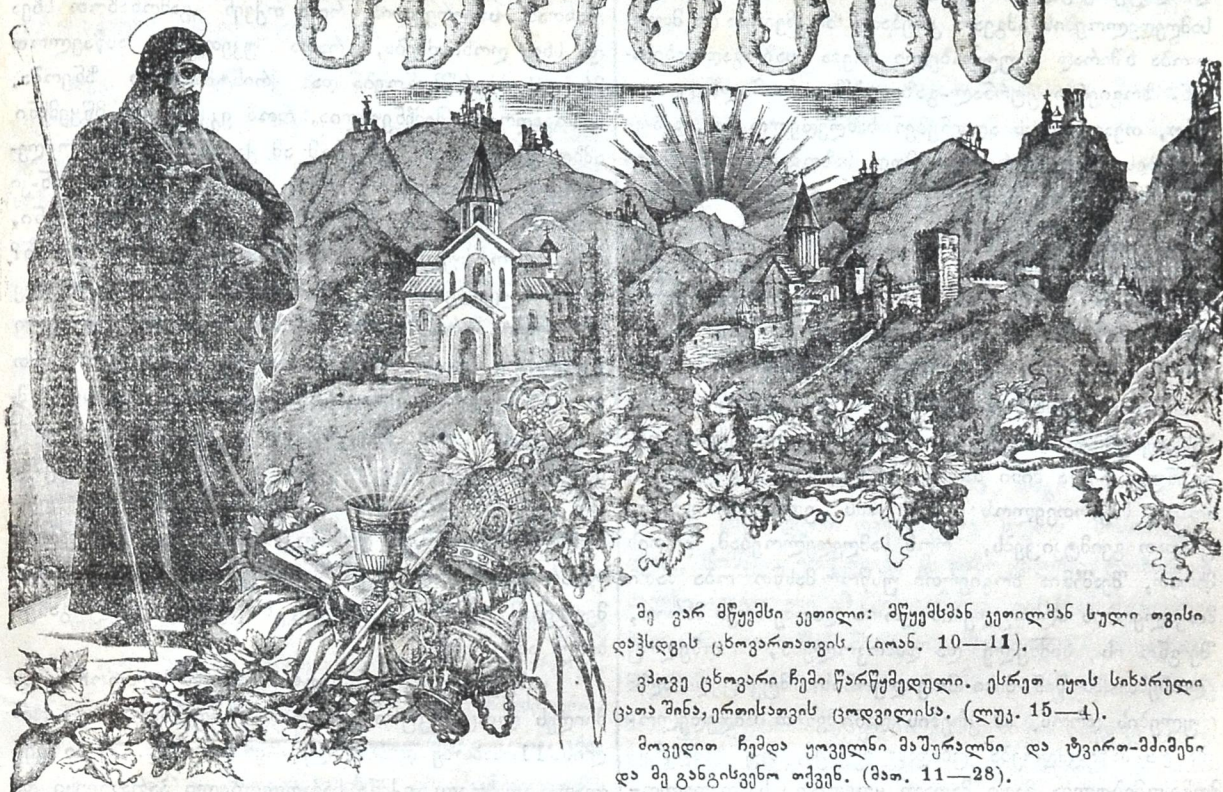 მე ვარ მწყემსი კეთილი: მწყემსმან კეთილმან სული თვისი
დაჰსდვის ცხოვართათვის. (იოან. 10—11).
ვპოვე ცხოვარი ჩემი წარწყმედული. ესრეთ იყოს სიხარული
ცათა შინა, ერთისათვის ცოდვილისა, (ლუკ. 15—4).
მოვედით ჩემდა ყოველნი მაშურალნი და ტვირთ-მძიმენი
და მე განგისვენო თქვენ. (მათ. 11—28).